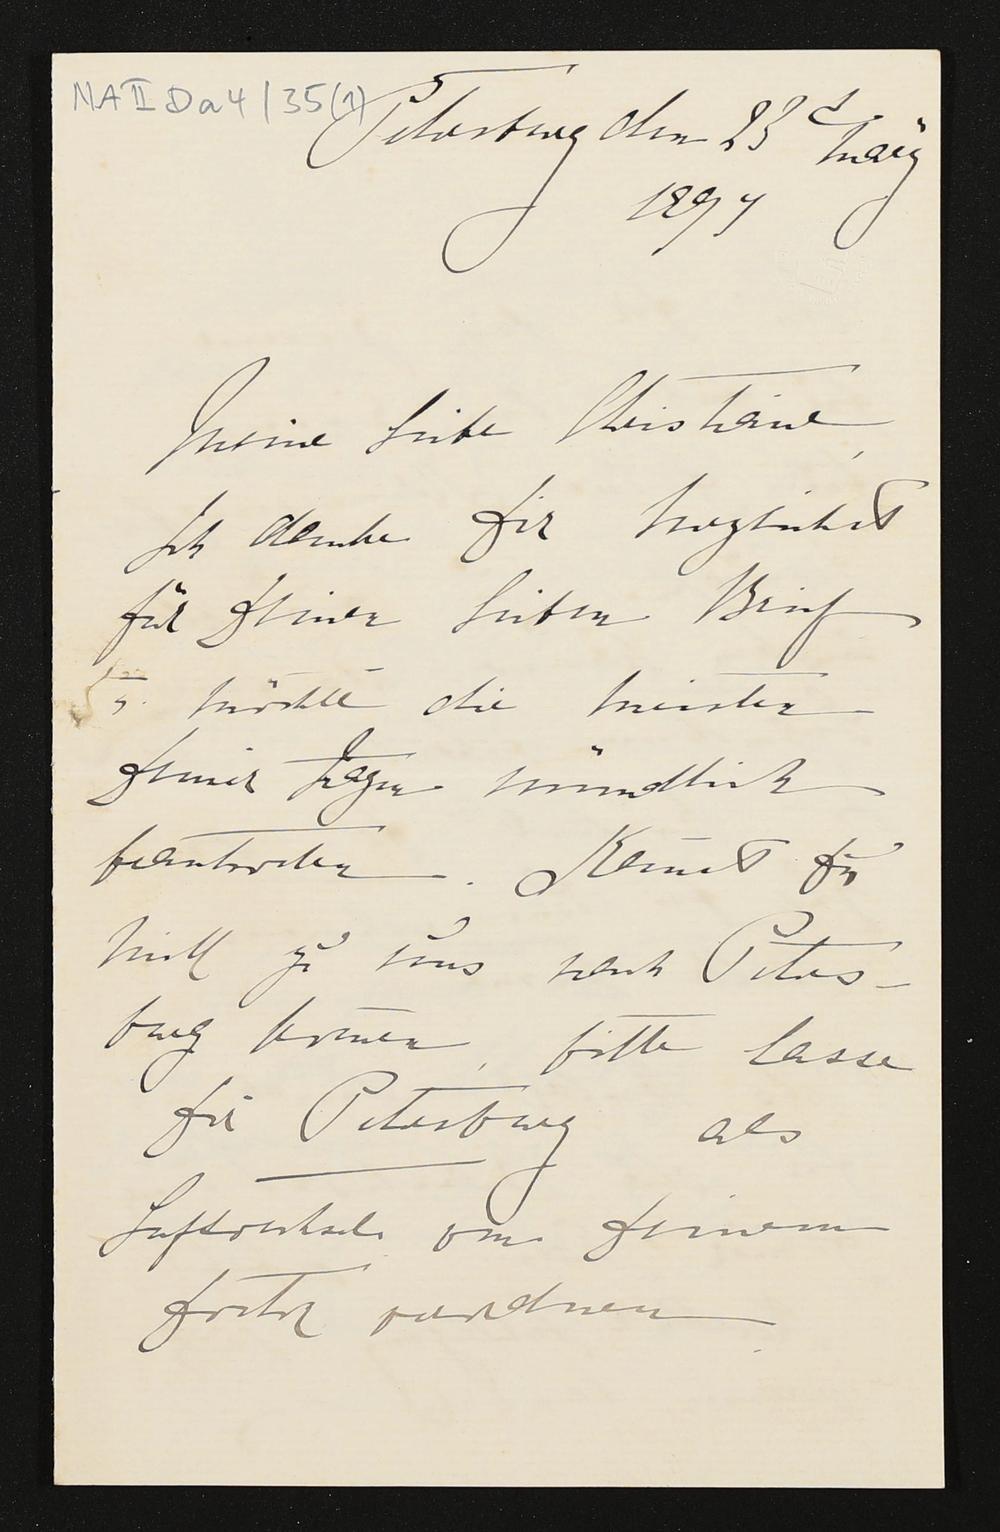 NA II Da 4 / 35 (1)
Petersburg den 23t März
1897
Meine liebe Christiane,
Ich danke Dir herzlichst
für Deinen lieben Brief
u. möchte die meisten
Deiner Fragen mündlich
beantworten. Kannst Du
nicht zu uns nach Peters-
burg kom̄en, bitte lasse
Dir Petersburg als
Luftwechsel von Deinem
Doctor verordnen.